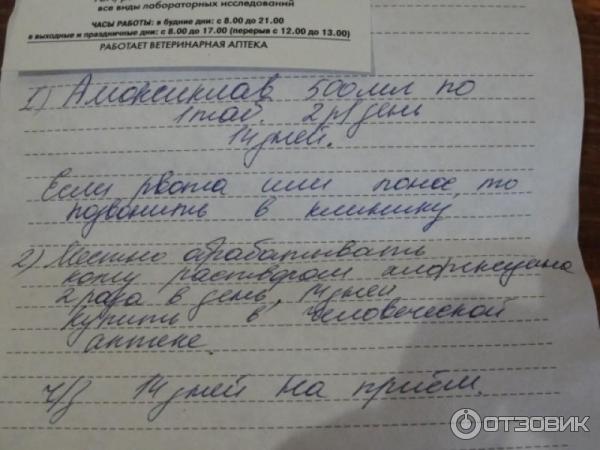 все виды лабораторных исследований
ЧАСЫ РАБОТЫ: в будние дни: с 8.00 до 21.00
в выходные и праздничные дни: с 8.00 до 17.00 (перерыв с 12.00 до 13.00)
РАБОТАЕТ ВЕТЕРИНАРНАЯ АПТЕКА
1) Амоксиклав 500мл по
1 таб. 2 р/день
14 дней.
Если рвота или понос, то
позвонить в клинику
2) Местно обрабатывать
кожу раствором
2 раза в день, 14 дней
купить в человеческой
аптеке.
ч/з 14 дней на приём.
ОТЗОВИК